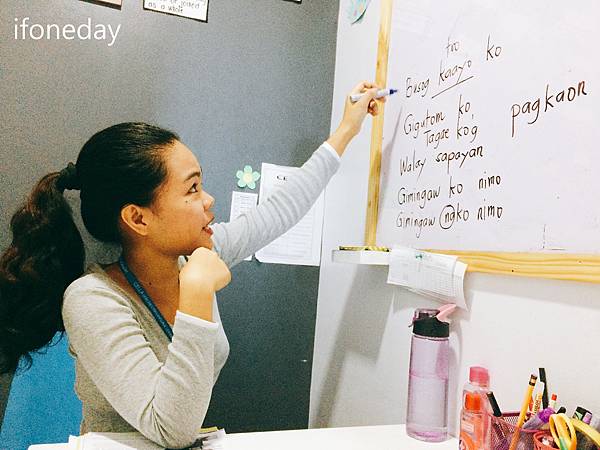 ifoneday
as a whole
too
Busog kaayo ko
Gigutom ko
Tagae kog
Walay sapayan
Gimingaw ko nimo
Gimingaw ngko nimo
pagkaon